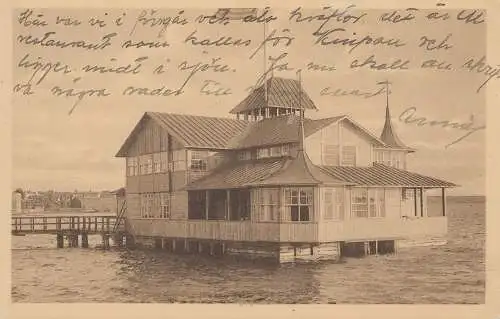 Här var vi i förrgår och åt kräftor, det är en
restaurant som kallas för Knipan och
ligger midt i sjön. Ja nu skall au
så några rader till